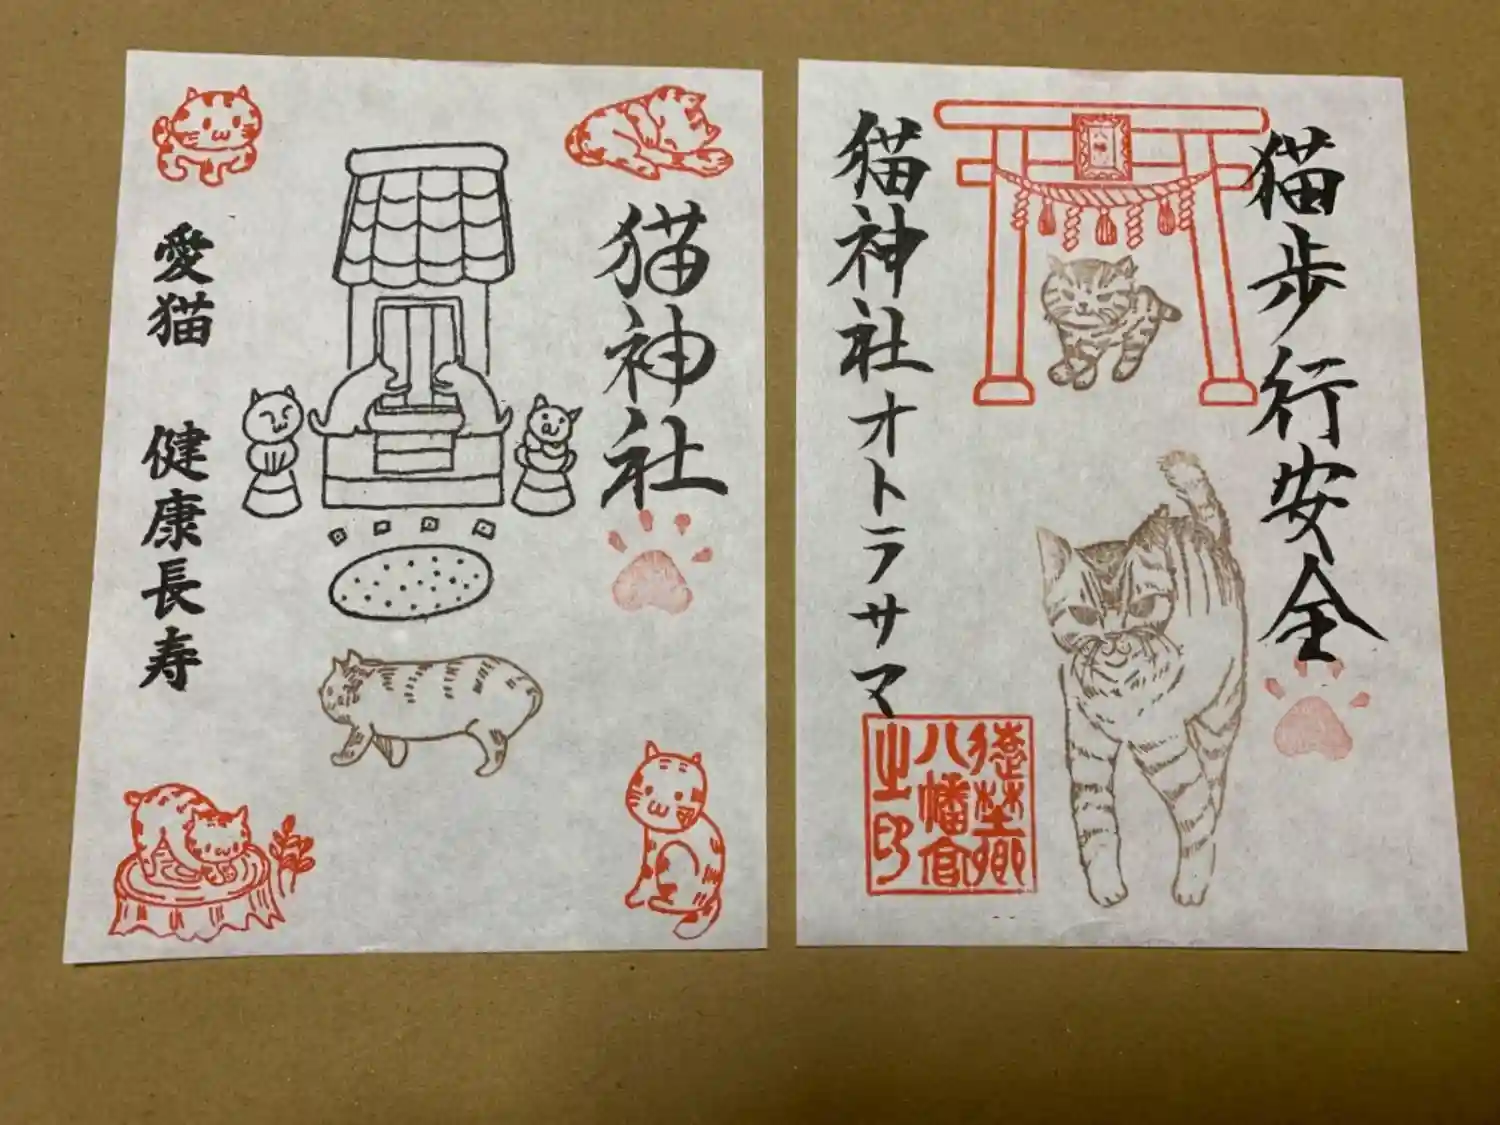 猫神社
愛猫 健康長寿
猫歩行安全
猫神社オトラサマ
八幡宮
之印